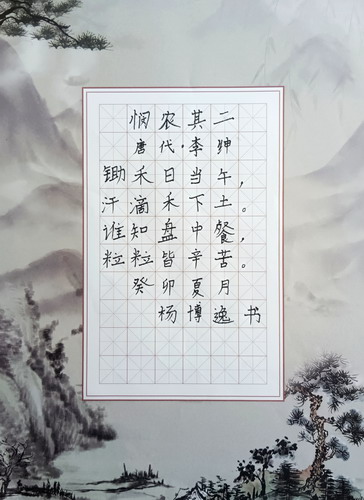 悯农其二
唐代·李绅
锄禾日当午，
汗滴禾下土。
谁知盘中餐，
粒粒皆辛苦。
癸卯夏月
杨博逸书